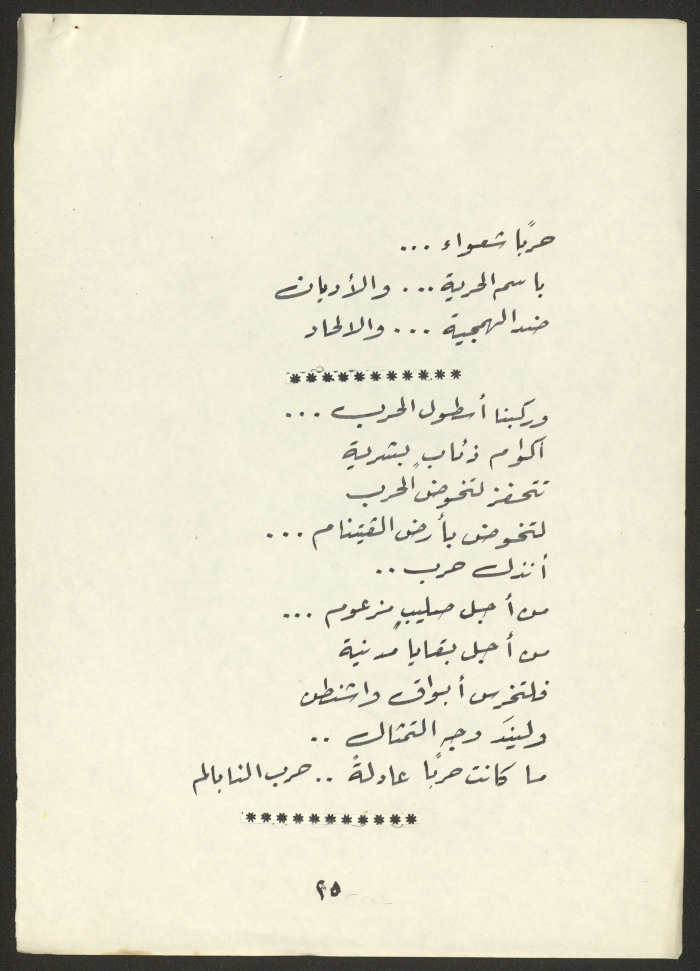 حربًا شعواء ...
باسم الحرية ... والأديان
ضد الهمجية ... والالحاد
***********
وركبنا أسطول الحرب ...
أكوام ذئابٍ بشرية
تتحفز لتخوض الحرب
لتخوض بأرض الڤيتنام ...
أنذل حرب ..
من أجل صليبٍ مزعوم ...
من أجل بقايا مدنية
فلتخرس أبواق واشنطن
وليندَ وجه التمثال ..
ما كانت حربًا عادلةً .. حرب النابالم
***********
٢٥